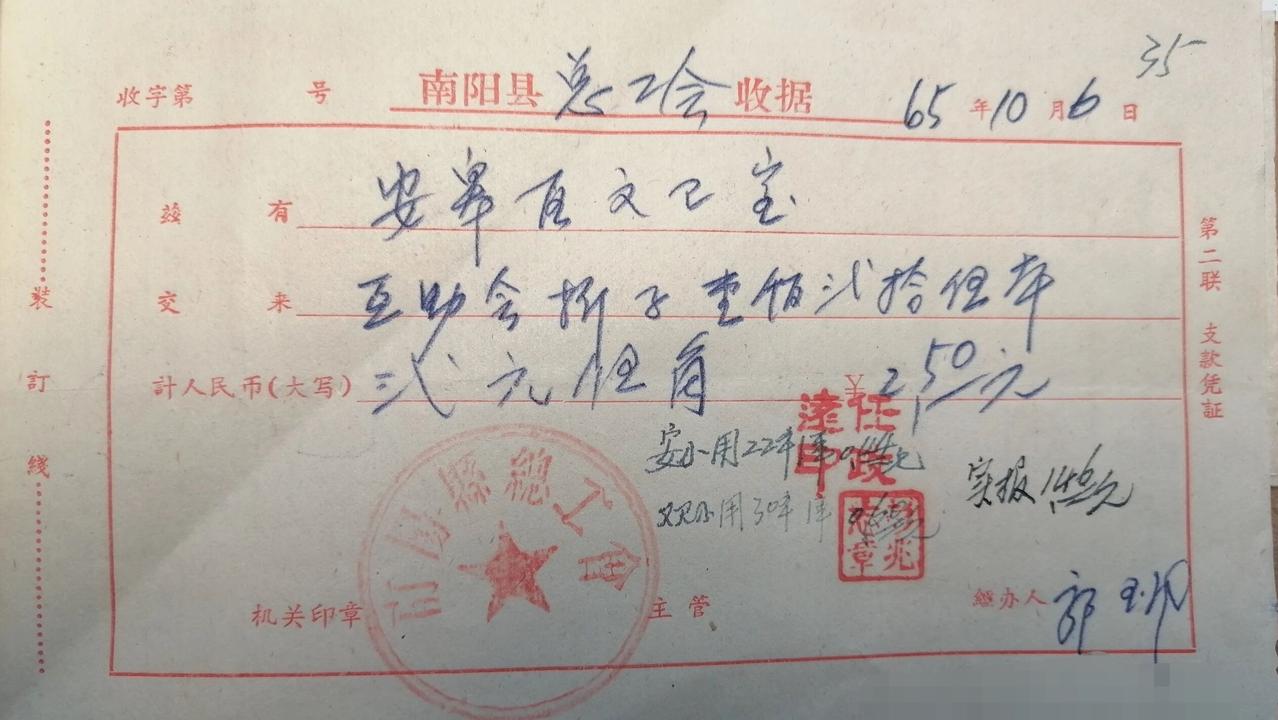 35
收字第 号 南阳县总工会收据 65年10月6日
兹有 安皋
交来 互助会折子壹佰弍拾伍本
計人民币(大写) 弍元伍角 ¥2.50元
安小用22本
用30本
实报
机关印章 主管 經办人 郭
南陽縣總工會
任政
印
章
第二联 支款凭証
装訂綫